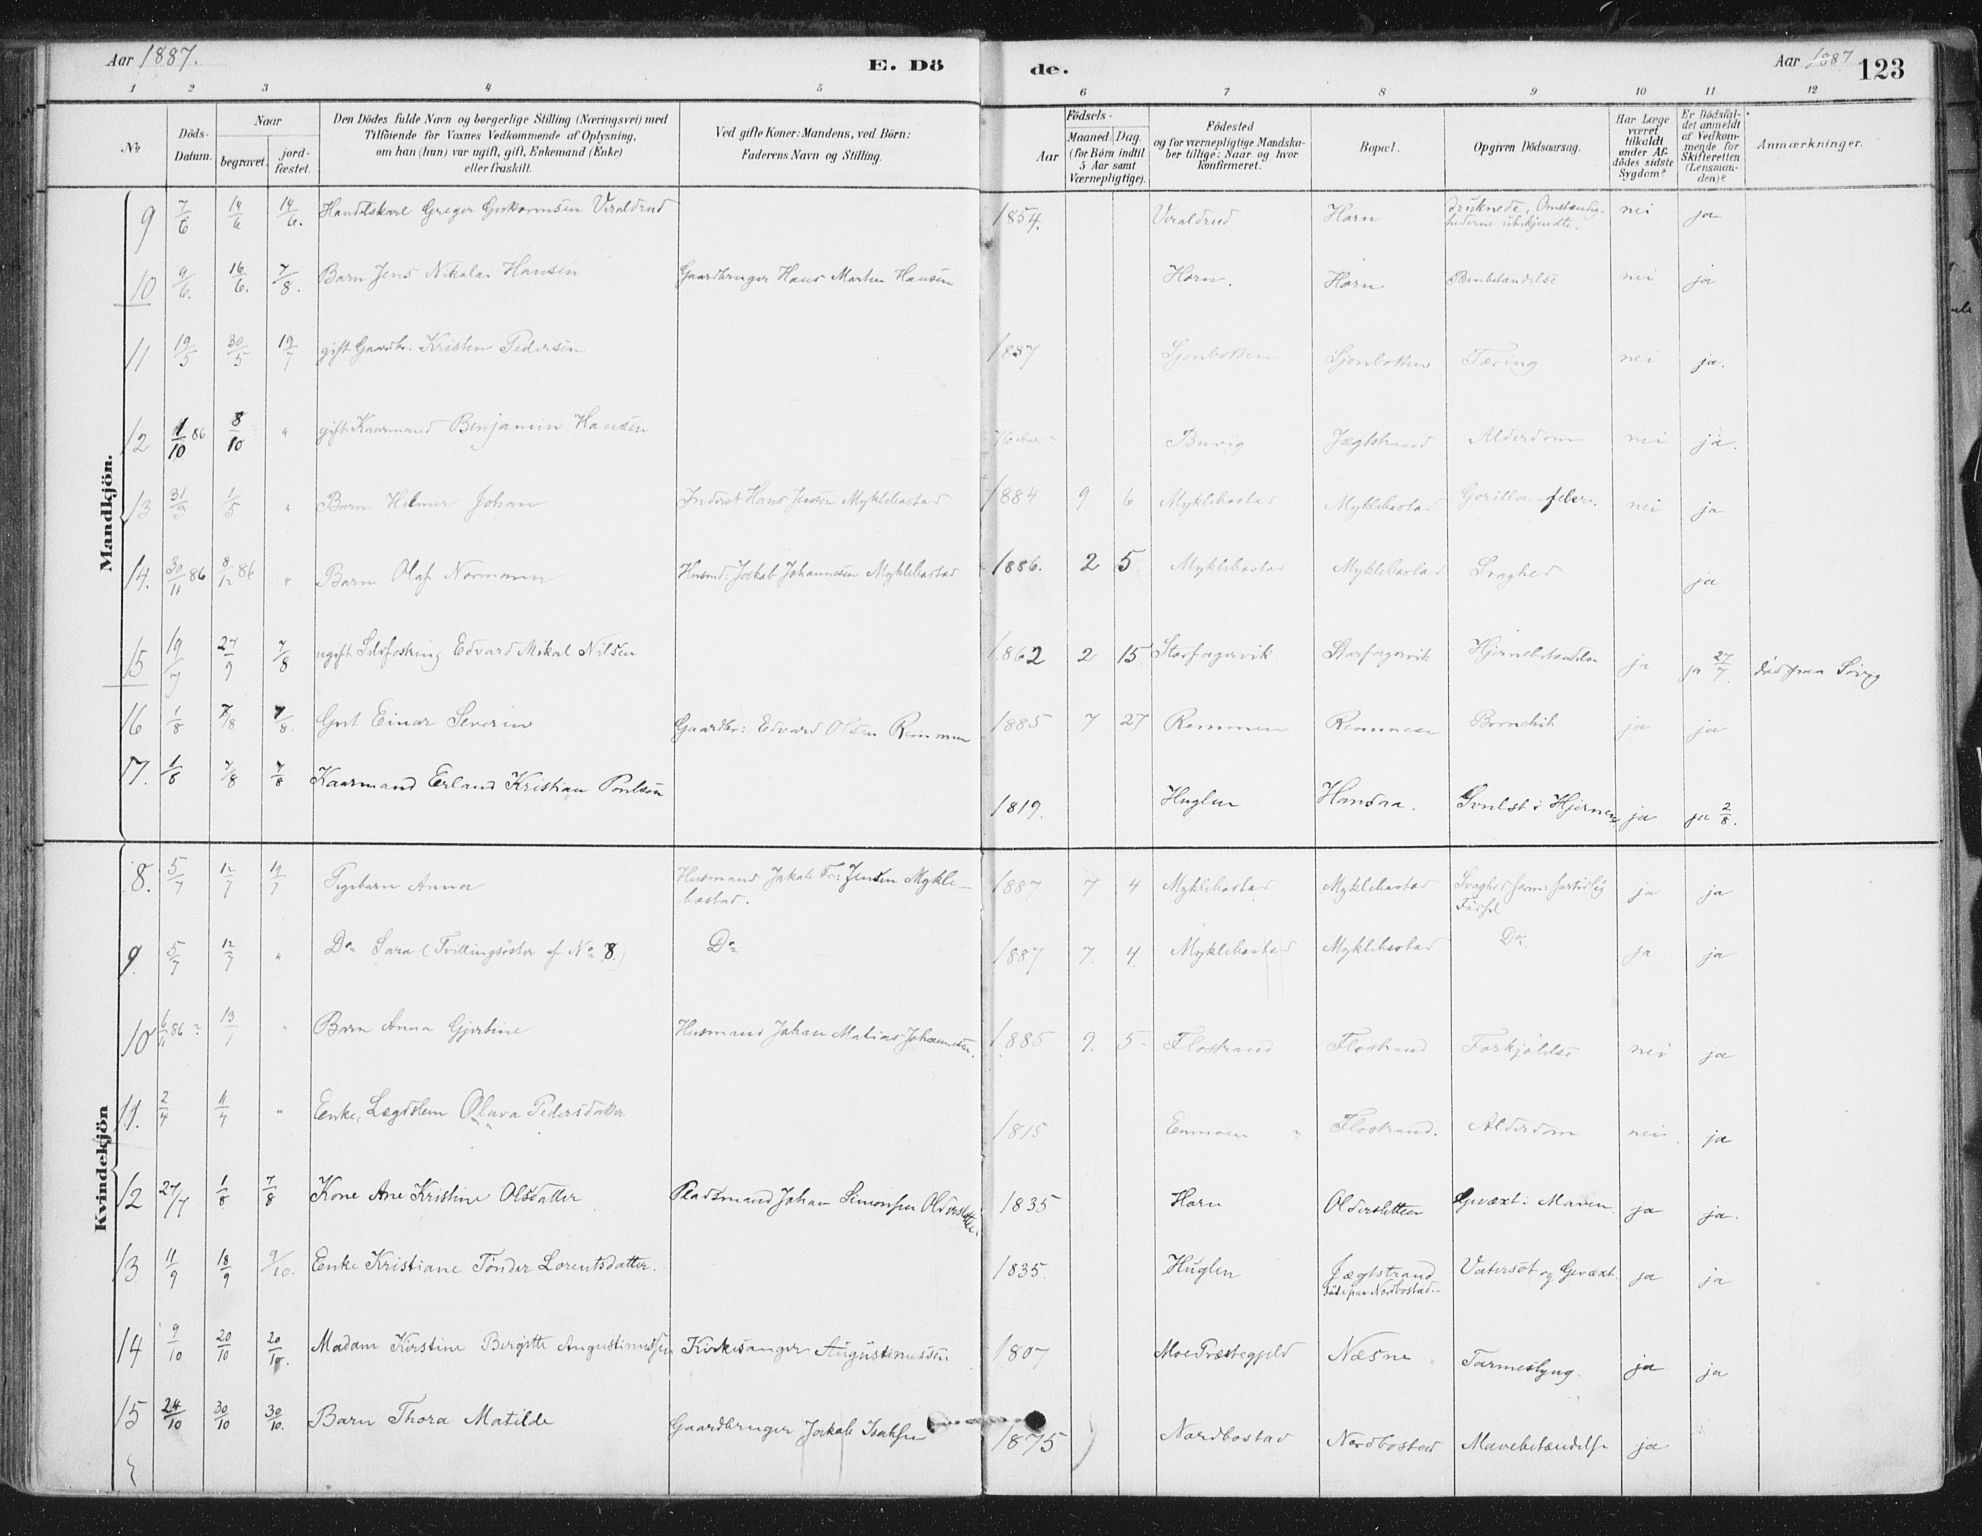 Aar 1887.
E. Dö
de.
Aar 1887
123
1 2 3 4 5 6 7 8 9 10 11 12
№
Döds-
Datum.
Naar
begravet.
jord-
fæstet.
Den Dödes fulde Navn og borgerlige Stilling (Næringsvei) med
Tilföiende for Voxnes Vedkommende af Oplysning,
om han (hun) var ugift, gift, Enkemand (Enke)
eller fraskilt.
Ved gifte Koner: Mandens, ved Börn:
Faderens Navn og Stilling.
Födsels-
Aar
Maaned. Dag.
(for Börn indtil
5 Aar samt
Værnepligtige).
Födested
og for værnepligtige Mandska-
ber tillige: Naar og hvor
konfirmeret.
Bopæl.
Opgiven Dödsaarsag.
Har Læge
været
tilkaldt
under Af-
dödes sidste
Sygdom?
Er Dödsfal-
det anmeldt
af Vedkom-
mende for
Skifteretten
(Lensman-
den)?
Anmærkninger.
Mandkjön.
9 7/6 14/6 14/6. Handelskarl Greger Viraldrud 1854. Viraldrud Horn druknede, Omstændig-
hederne ubekjendte. nei ja
10 9/6. 16/6. 7/8. Barn Jens Nikolai Hansen Gaardbruger Hans Martin Hansen Horn. Horn Benbetændelse nei ja
11 19/5 30/5 19/7 gift Gaardbr. Kristen Pedersen Sjonbotten Sjonbotten Tæring nei ja.
12 1/10 86 8/10 " gift Kaarmand Benjamin Hansen Buvig Jægtstrand Alderdom nei ja.
13 31/3 1/5 " Barn Helmer Johan Inderst Hans Jensen Myklebostad 1884 9 6 Myklebostad Myklebostad feber. nei ja
14. 30/11 86 8/12 86 " Barn Olaf Normann Husmd. Jakob Johannesen Myklebostad 1886. 2 5 Myklebostad Myklebostad Svaghed ja
15 19/7 27/9 7/8 ugift Edvard Mikal Nilsen 1862 2 15. Storfagervik Storfagervik Hjernebetændelse ja ja 27/7. död paa
16 1/8 7/8 7/8. Gut Einar Severin Gaardbr: Edvard Olsen Remmen 1885 7 27 Remmen Remmen ja ja
17. 1/8 7/8 7/8 Kaarmand Erland Kristian Poulsen 1819. Huglen Hamdaa. Svulst i Hjernen ja ja 2/8.
Kvindekjön
8. 5/7 12/7 19/7 Pigebarn Anna Husmand Jakob Fr: Jensen Mykle-
bostad. 1887 7 4 Myklebostad Myklebostad Svaghed form: fortidlig
Födsel ja ja
9. 5/7 12/7 " Do Sara (Tvillingsöster af No 8.) Do 1887 7. 4. Myklebostad Myklebostad Do. ja ja
10 86 13/7 " Barn Anna Gjertine Husmand Johan Matias Johannesen. 1885 9. 5 Flostrand Flostrand Forkjölelse nei ja
11. 2/4 11/4 " Enke, Lægdslem Olava Pedersdatter 1815 Enmoen Flostrand. Alderdom nei ja
12 27/7 1/8 7/8 Kone Ane Kristine Olsdatter Pladsmand Johan Simonsen Oldersletten. 1835 Horn Oldersletten Gevæxt i Maven ja ja.
13 11/9 18/9 9/10. Enke Kristiane Tönder Lorentsdatter. 1835. Huglen Jægtstrand
Död paa Nordbostad. Vatersot og Gevæxt. ja ja
14 9/10 20/10 20/10. Madam Kirstine Bergitte Augustinussen Kirkesanger Augustinussen 1807 Moe Præstegjeld Næsne Tarmeslyng. ja ja
15 24/10 30/10 30/10. Barn Thora Matilde Gaardbruger Jakob Isaksen 1875 Nordbostad Nordbostad Mavebetændelse ja